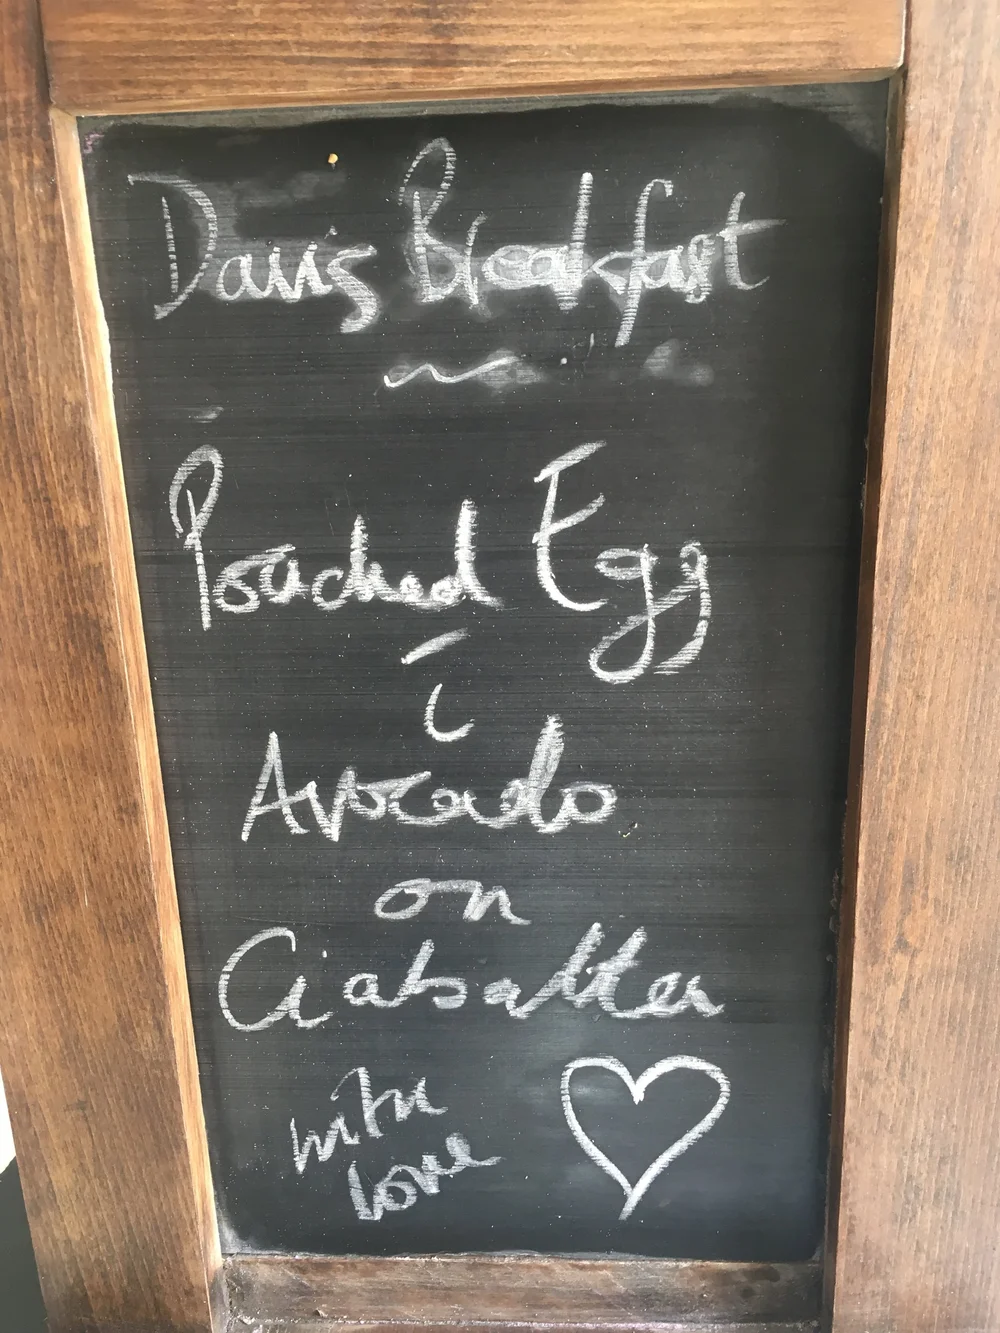 Davi's Breakfast
Poached Egg
c̄
Avocado
on
Ciabatta
with
love